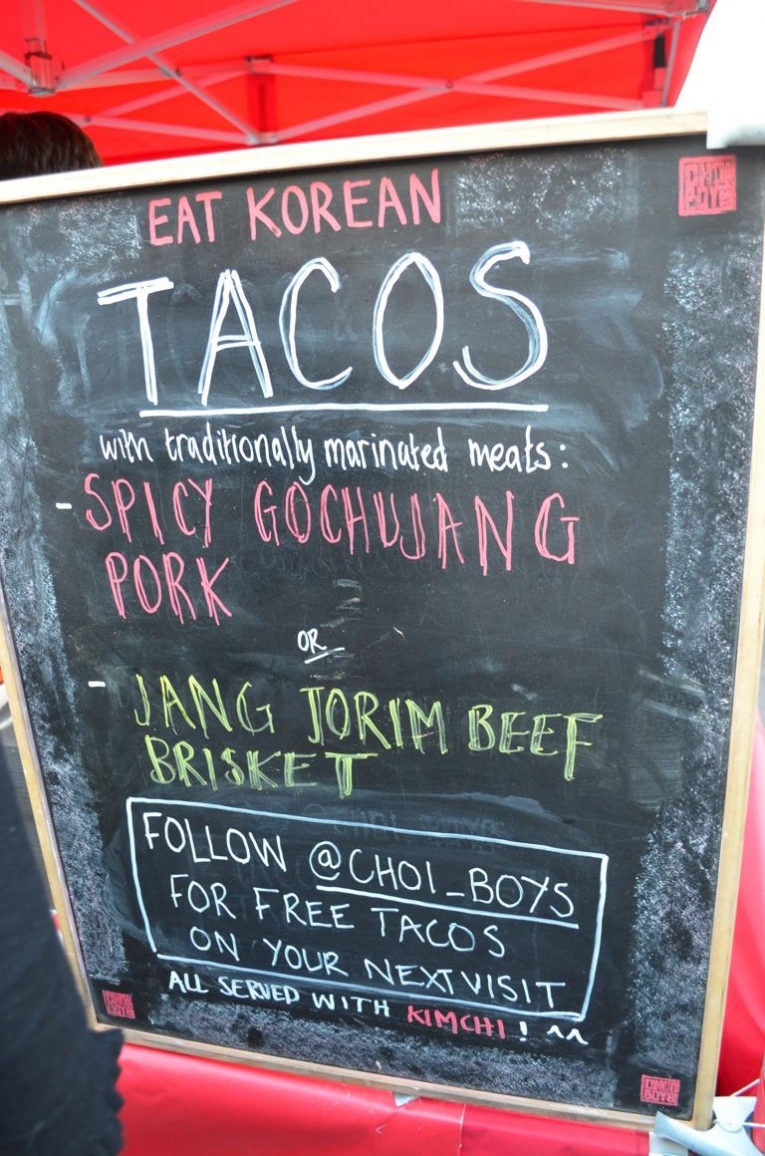 EAT KOREAN
CHOI
BOYS
TACOS
with traditionally marinated meats:
- SPICY GOCHUJANG
PORK
OR
- JANG JORIM BEEF
BRISKET
FOLLOW @CHOI_BOYS
FOR FREE TACOS
ON YOUR NEXT VISIT
ALL SERVED WITH KIMCHI! ^^
CHOI
BOYS
CHOI
BOYS